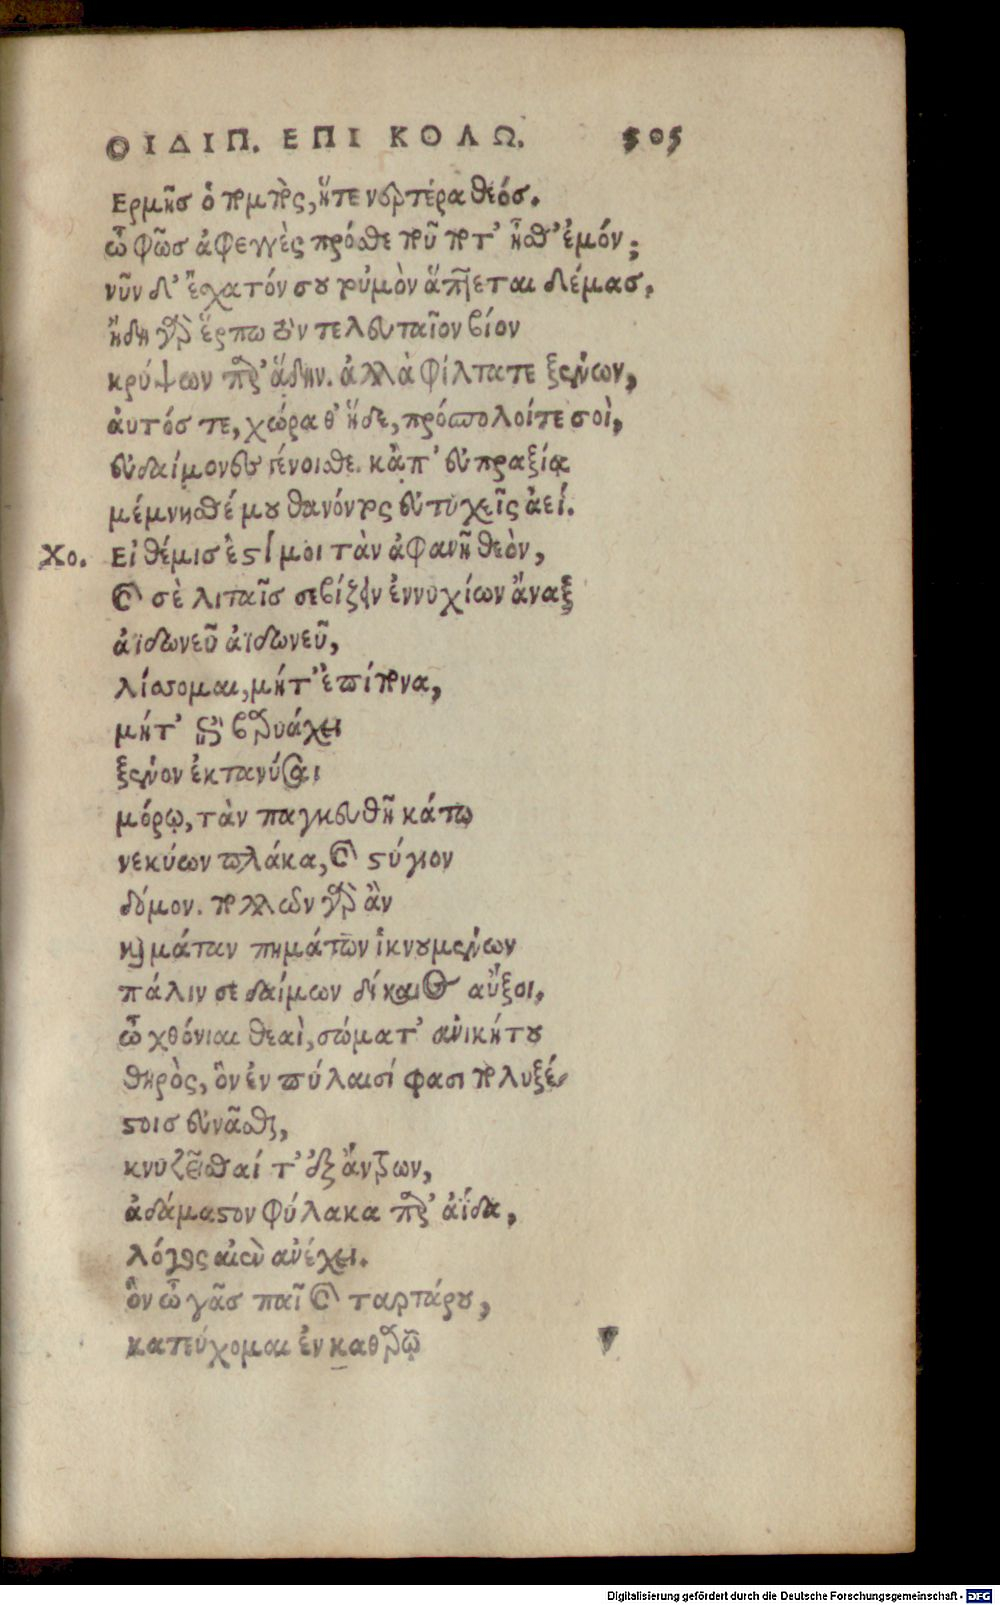 ΟΙΔΙΠ. ΕΠΙ ΚΟΛΩ. 505
Ερμῆσ ὁ πομπὸς, ἥτε νερτέρα θεόσ.
ὦ φῶσ ἀφεγγὲς πρόσθε πού ποτ' ἦσθ' ἐμόν;
νῦν δ' ἔσχατόν σου τοὐμὸν ἅπτεται δέμασ.
ἤδη γὰρ ἕρπω τὸν τελευταῖον βίον
κρύψων παρ' ἅδην. ἀλλὰ φίλτατε ξένων,
ἀυτόσ τε, χώρα θ' ἥδε, πρόσπολοί τε σοὶ,
εὐδαίμονες γένοισθε. κἀπ' εὐπραξίᾳ
μέμνησθέ μου θανόντος εὐτυχεῖς ἀεί.
Χο. Εἰ θέμισ ἐστί μοι τὰν ἀφανῆ θεὸν,
καὶ σὲ λιταῖσ σεβίζειν ἐννυχίων ἄναξ
ἀϊδωνεῦ ἀϊδωνεῦ,
λίσσομαι, μήτ' ἐπίπονα,
μήτ' ἐπὶ βαρυάχει
ξένον ἐκτανύσαι
μόρῳ, τὰν παγκευθῆ κάτω
νεκύων πλάκα, καὶ στύγιον
δόμον. πολλῶν γὰρ ἂν
καὶ μάταν πημάτων ἱκνουμένων
πάλιν σε δαίμων δίκαιος αὔξοι.
ὦ χθόνιαι θεαὶ, σώματ' ἀνικήτου
θηρὸς, ὃν ἐν πύλαισί φασι πολυξέ-
στοισ εὐνᾶσθαι,
κνυζεῖσθαί τ' ἐξ ἄντρων,
ἀδάμαστον φύλακα παρ' ἀΐδα,
λόγος αἰὲν ἀνέχει.
ὃν ὦ γᾶσ παῖ καὶ ταρτάρου,
κατεύχομαι ἐν καθαρῷ
Digitalisierung gefördert durch die Deutsche Forschungsgemeinschaft - DFG